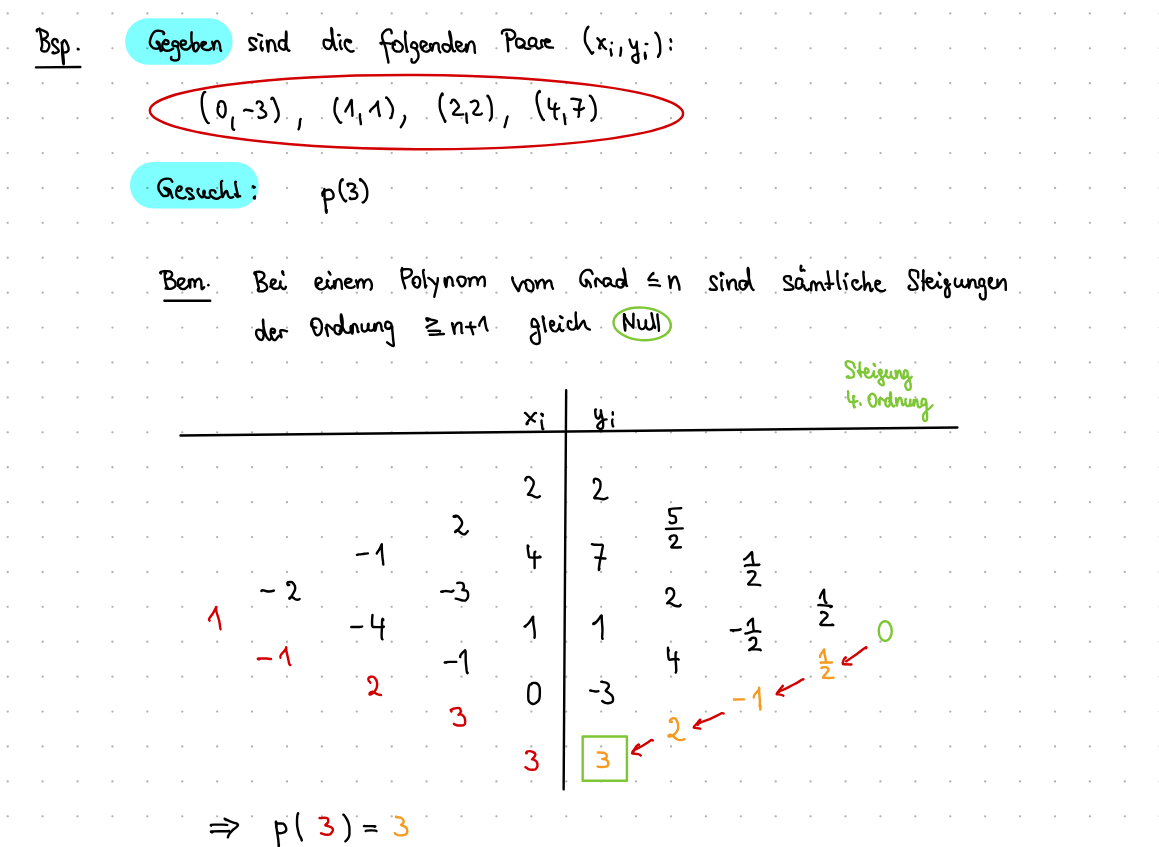 Bsp. Gegeben sind die folgenden Paare (xᵢ, yᵢ):
(0,-3), (1,1), (2,2), (4,7)
Gesucht: p(3)
Bem. Bei einem Polynom vom Grad ≤ n sind sämtliche Steigungen
der Ordnung ≧ n+1 gleich Null
Steigung
4. Ordnung
xᵢ yᵢ
2 2
2 5/2
-1 4 7 1/2
-2 -3 2 1/2
1 -4 1 1 -1/2 0
-1 -1 4 1/2
2 0 -3 -1
3 2
3 3
⇒ p(3) = 3